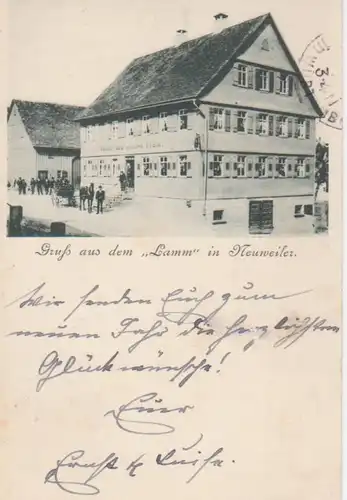 Gruß aus dem „Lamm" in Neuweiler.
Wir senden Euch zum
neuen Jahr die herzlichsten
Glückwünsche!
Euer
Ernst & Luise.